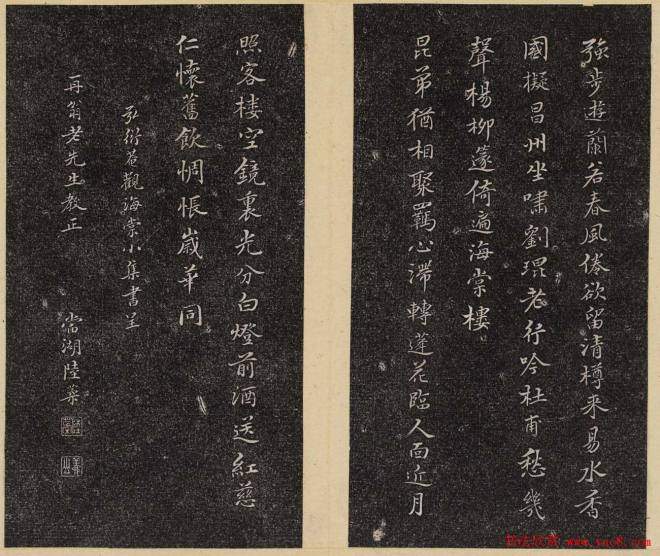 強步遊蘭若春風倦欲留清樽来易水香
國擬昌州坐嘯劉琨老行吟杜甫愁幾
聲楊柳篴倚遍海棠樓
昆弟猶相聚羈心滞轉蓬花臨人面近月
照客樓空鏡裏光分白燈前酒送紅慈
仁懷舊飲惆悵歲華同
弘衍菴觀海棠小集書呈
再翁老先生教正
當湖陸葇
www.yac8.com